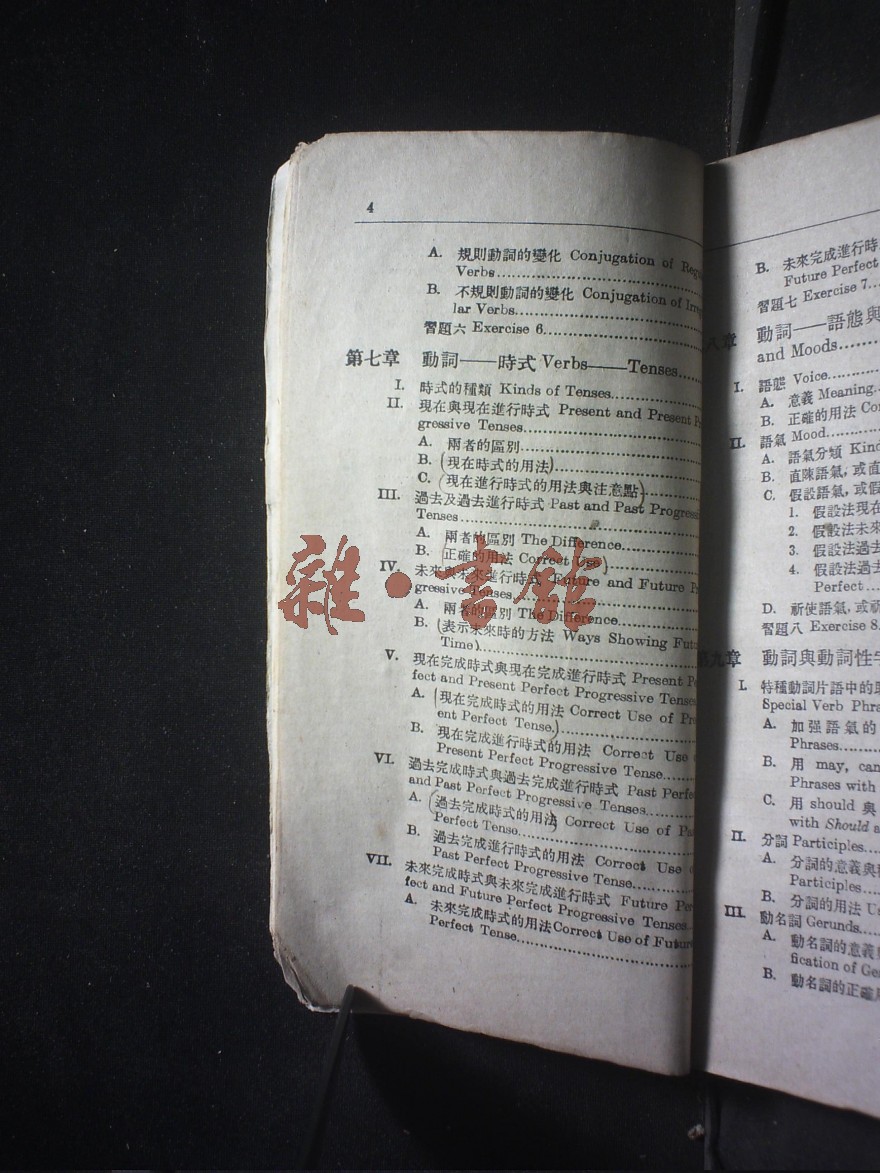 4
A. 規則動詞的變化 Conjugation of
Verbs
B. 不規則動詞的變化 Conjugation of
lar Verbs
習題六 Exercise 6
第七章 動詞——時式 Verbs——Tenses
I. 時式的種類 Kinds of Tenses
II. 現在與現在進行時式 Present and Present
gressive Tenses
A. 兩者的區別
B. (現在時式的用法)
C. (現在進行時式的用法與注意點)
III. 過去及過去進行時式 Past and Past
Tenses
A. 兩者的區別 The Difference
B. (正確的用法 Correct Use)
IV. 未來與未來進行時式 Future and Future
gressive Tenses
A. 兩者的區別 The Difference
B. (表示未來時的方法 Ways Showing
Time)
V. 現在完成時式與現在完成進行時式 Present
fect and Present Perfect Progressive Tenses
A. (現在完成時式的用法 Correct Use of
ent Perfect Tense)
B. 現在完成進行時式的用法 Correct Use
Present Perfect Progressive Tense
VI. 過去完成時式與過去完成進行時式 Past
and Past Perfect Progressive Tenses
A. (過去完成時式的用法) Correct Use of
Perfect Tense
B. 過去完成進行時式的用法 Correct Use
Past Perfect Progressive Tense
VII. 未來完成時式與未來完成進行時式 Future
fect and Future Perfect Progressive Tenses
A. 未來完成時式的用法 Correct Use of
Perfect Tense
雜·書館
B. 未來完成進行時
Future Perfect
習題七 Exercise 7
八章 動詞——語態與
and Moods
I. 語態 Voice
A. 意義 Meaning
B. 正確的用法
II. 語氣 Mood
A. 語氣分類
B. 直陳語氣,或
C. 假設語氣,或
1. 假設法現在
2. 假設法未來
3. 假設法過去
4. 假設法過去
Perfect
D. 祈使語氣,或
習題八 Exercise 8
第九章 動詞與動詞性
I. 特種動詞片語中的
Special Verb
A. 加强語氣的
Phrases
B. 用 may, can
Phrases with
C. 用 should 與
with Should
II. 分詞 Participles
A. 分詞的意義與
Participles
B. 分詞的用法
III. 動名詞 Gerunds
A. 動名詞的意義
fication of
B. 動名詞的正確